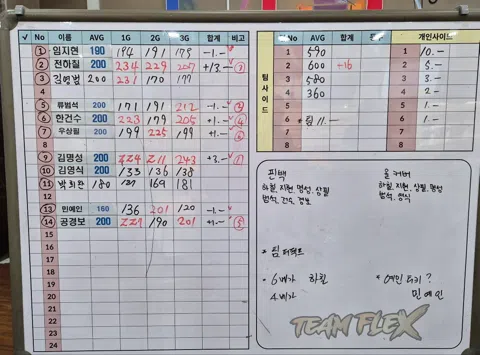 √ No 이름 AVG 1G 2G 3G 합계 비고
1 임지현 190 194 191 179 -1.-
2 전하칠 200 234 229 207 +13.- 3
3 200 231 170 177
4
5 류범석 200 171 191 212 -1.-
6 한건수 200 223 179 205 +1.- 4
7 우상필 200 199 225 199 +1.-
8
9 김명성 200 224 211 243 +3.- 1
10 김영식 200 133 136 138
11 박치관 180 169 181
12
13 민예인 160 136 201 120 -1.-
14 공경보 200 227 190 201 +1.- 5
15
16
17
18
19
20
21
22
23
24
팀사이드
AVG 합계 개인사이드
1 590 1 10.-
2 600 +16 2 5.-
3 580 3 3.-
4 360 4 2.-
5 5 1.-
6 * 팀 11.- 6 1.-
7 7
8 8
핀택 올커버
하칠, 지현, 명성, 상필 하칠, 지현, 상필, 명성
범석, 건수, 경보 범석, 영식
* 팀 퍼펙트
· 6배가 하칠 * 예인 터키?
4배가 민예인
TEAM FLEX